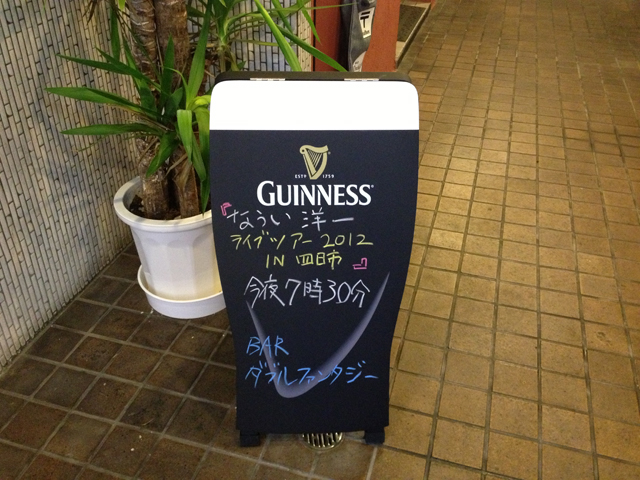 ESTD 1759
GUINNESS
『なうい洋一
ライブツアー2012
IN 四日市』
今夜7時30分
BAR
ダブルファンタジー